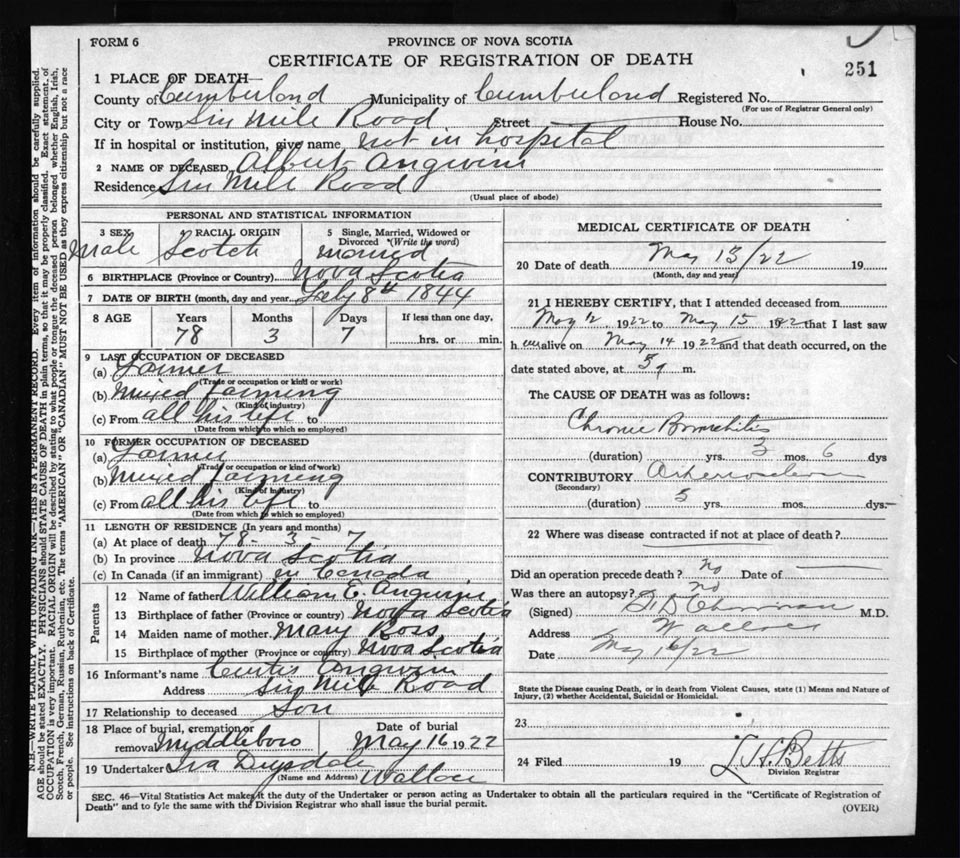 FORM 6
PROVINCE OF NOVA SCOTIA
CERTIFICATE OF REGISTRATION OF DEATH
251
1 PLACE OF DEATH—
County of Cumberland Municipality of Cumberland Registered No.
(For use of Registrar General only)
City or Town Six Mile Road Street House No.
If in hospital or institution, give name not in hospital
2 NAME OF DECEASED Albert Angwin
Residence Six Mile Road
(Usual place of abode)
PERSONAL AND STATISTICAL INFORMATION
3 SEX RACIAL ORIGIN 5 Single, Married, Widowed or
Divorced (Write the word)
Male Scotch married
6 BIRTHPLACE (Province or Country) Nova Scotia
7 DATE OF BIRTH (month, day and year) Feby 8th 1844
8 AGE Years Months Days If less than one day,
78 3 7 hrs. or min.
9 LAST OCCUPATION OF DECEASED
(a) Farmer
(Trade or occupation or kind or work)
(b) Mixed farming
(Kind of industry)
(c) From all his life to
(Date from which to which so employed)
10 FORMER OCCUPATION OF DECEASED
(a) Farmer
(Trade or occupation or kind of work)
(b) Mixed farming
(Kind of industry)
(c) From all his life to
(Date from which to which so employed)
11 LENGTH OF RESIDENCE (In years and months)
(a) At place of death 78 - 3 - 7
(b) In province Nova Scotia
(c) In Canada (if an immigrant) in Canada
Parents
12 Name of father William E. Angwin
13 Birthplace of father (Province or country) Nova Scotia
14 Maiden name of mother Mary Ross
15 Birthplace of mother (Province or country) Nova Scotia
16 Informant's name Curtis Angwin
Address Six Mile Road
17 Relationship to deceased Son
18 Place of burial, cremation or
removal Middleboro
Date of burial
May 16 1922
19 Undertaker Ira Drysdale
(Name and Address) Wallace
MEDICAL CERTIFICATE OF DEATH
20 Date of death May 15/22 19
(Month, day and year)
21 I HEREBY CERTIFY, that I attended deceased from
May 12 1922 to May 15 1922 that I last saw
h im alive on May 14 1922 and that death occurred, on the
date stated above, at m.
The CAUSE OF DEATH was as follows:
Chronic Bronchitis
(duration) yrs. 3 mos. 6 dys
CONTRIBUTORY
(Secondary)
(duration) 5 yrs. mos. dys.
22 Where was disease contracted if not at place of death?
Did an operation precede death? no Date of
Was there an autopsy? no
(Signed) M.D.
Address Wallace
Date May 16/22
State the Disease causing Death, or in death from Violent Causes, state (1) Means and Nature of
Injury, (2) whether Accidental, Suicidal or Homicidal.
23
24 Filed 19 L. H. Betts
Division Registrar
SEC. 46—Vital Statistics Act makes it the duty of the Undertaker or person acting as Undertaker to obtain all the particulars required in the "Certificate of Registration of
Death" and to fyle the same with the Division Registrar who shall issue the burial permit.
(OVER)
N.B.—WRITE PLAINLY WITH UNFADING INK—THIS IS A PERMANENT RECORD. Every item of information should be carefully supplied.
AGE should be stated EXACTLY. PHYSICIANS should STATE CAUSE OF DEATH in plain terms, so that it may be properly classified. Exact statement of
OCCUPATION is very important. RACIAL ORIGIN will be described by stating to what people or tongue the deceased person belonged whether English, Irish,
Scotch, French, German, Russian, Ruthenian, etc. The terms "AMERICAN" OR "CANADIAN" MUST NOT BE USED as they express citizenship but not a race
or people. See instructions on back of Certificate.